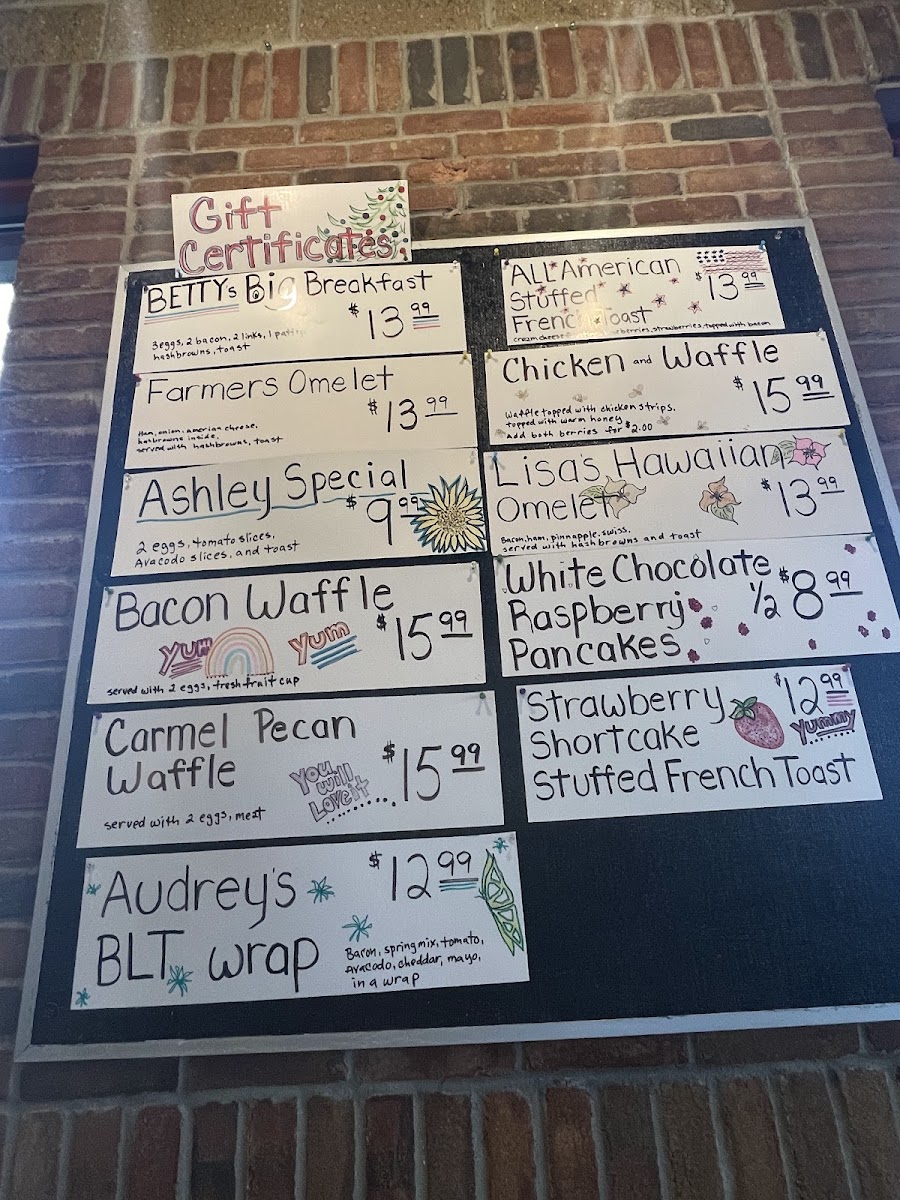 Gift
Certificates
BETTYs Big Breakfast
$13.99
3eggs, 2 bacon, 2 links, 1 pattie
hashbrowns, toast
Farmers Omelet
$13.99
Ham, onion, american cheese,
hasbrowns inside,
served with hashbrowns, toast
Ashley Special
$9.99
2 eggs, tomato slices,
Avacodo slices, and toast
Bacon Waffle
$15.99
Yum
Yum
served with 2 eggs, fresh fruit cup
Carmel Pecan
Waffle
$15.99
You
will
Love it
served with 2 eggs, meat
Audrey's
BLT wrap
$12.99
Bacon, spring mix, tomato,
Avacodo, cheddar, mayo,
in a wrap
ALL American
Stuffed
French Toast
$13.99
cream cheese berries, strawberries, topped with bacon
Chicken and Waffle
$15.99
Waffle topped with chicken strips,
topped with warm honey
Add both berries for $2.00
Lisa's Hawaiian
Omelet
$13.99
Bacon, ham, pinnapple, swiss,
served with hashbrowns and toast
White Chocolate
Raspberry
Pancakes
1/2 $8.99
Strawberry
Shortcake
Stuffed French Toast
$12.99
Yummy